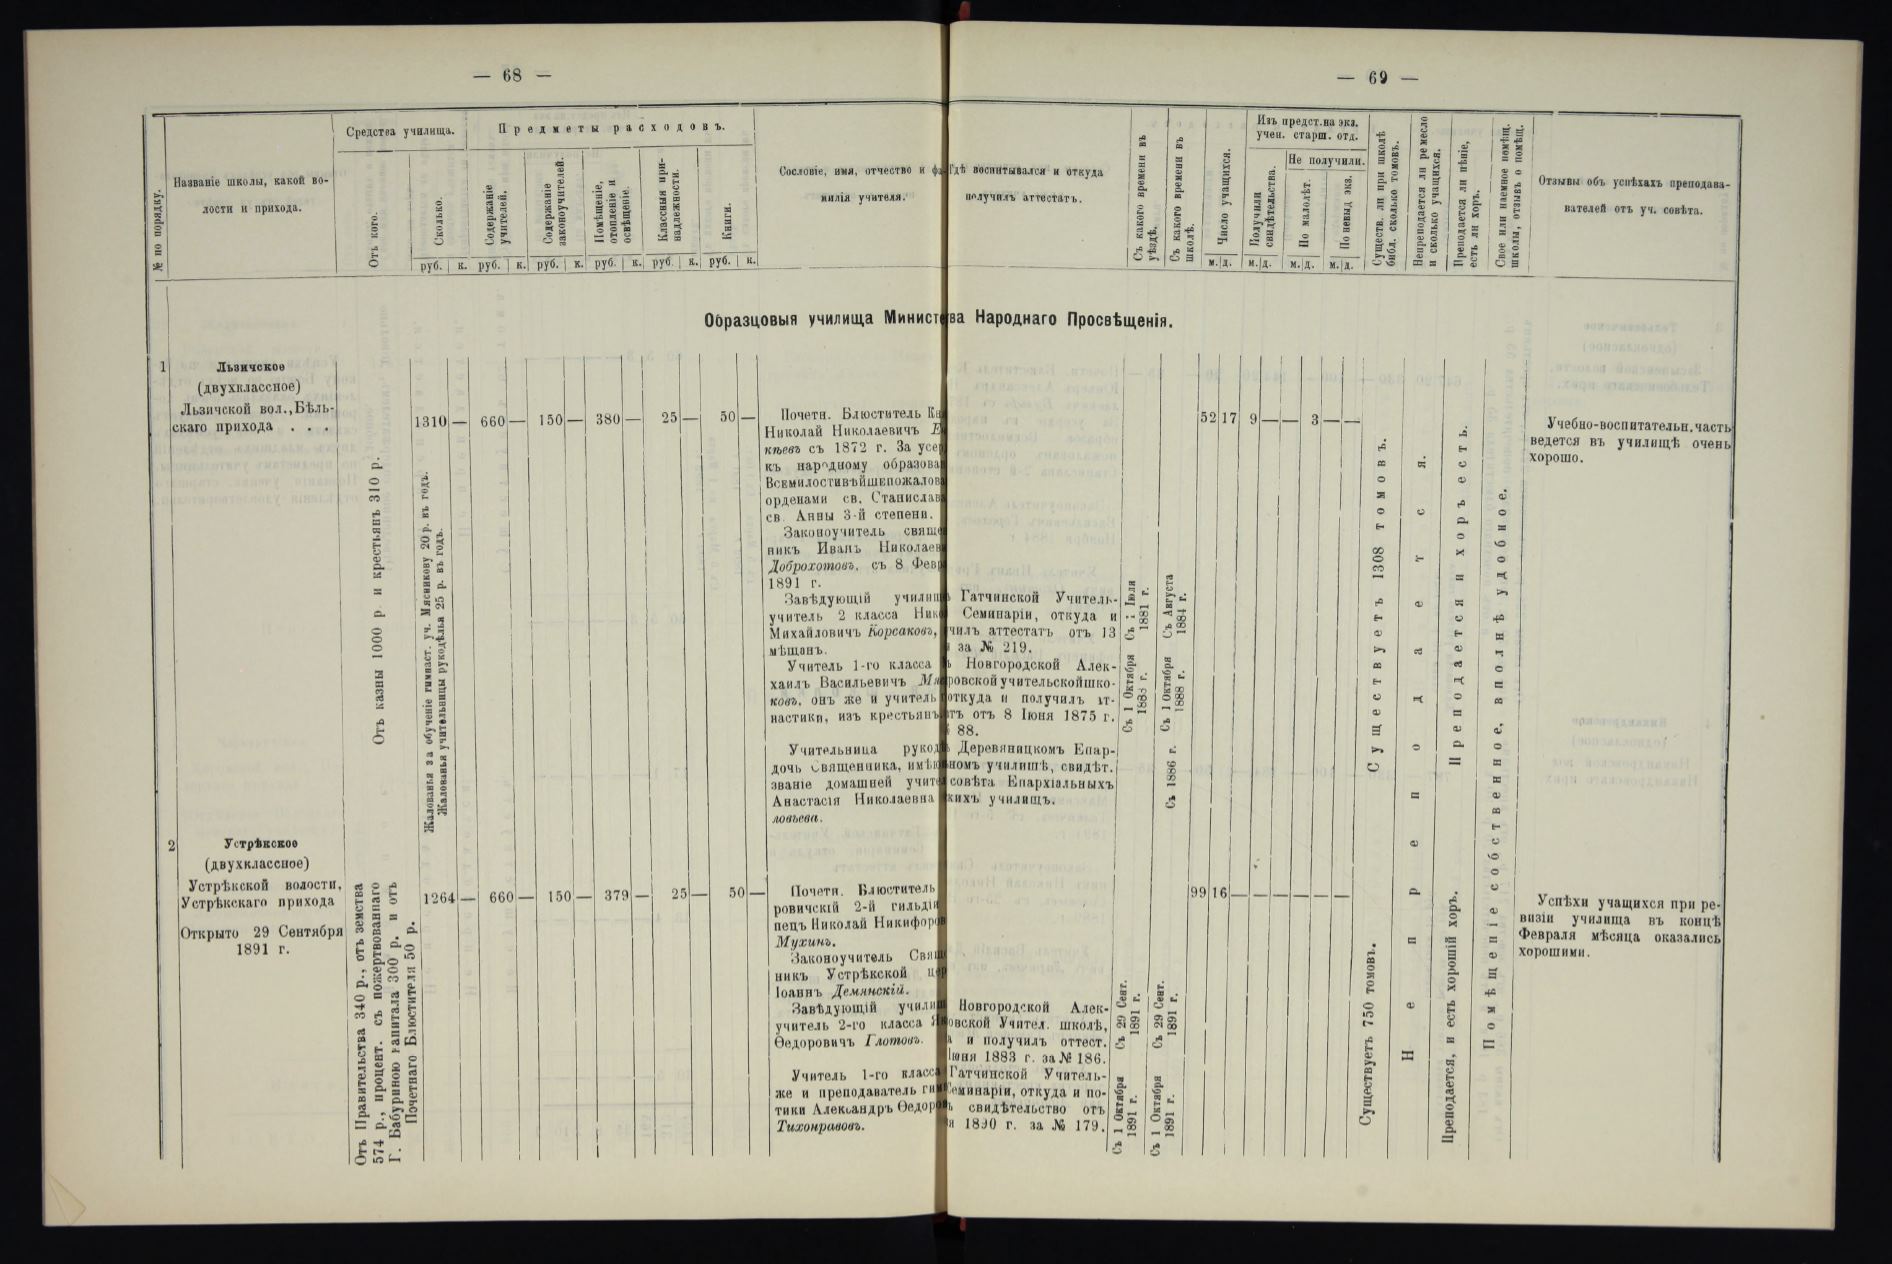 — 68 —
№ по порядку.
Названіе школы, какой во-
лости и прихода.
Средства училища.
Отъ кого.
Сколько.
руб. к.
Предметы расходовъ.
Содержаніе
учителей.
руб. к.
Содержаніе
законоучителей.
руб. к.
Помѣщеніе,
отопленіе и
освѣщеніе.
руб. к.
Классныя при-
надлежности.
руб. к.
Книги.
руб. к.
Сословіе, имя, отчество и фа-
милія учителя.
— 69 —
Гдѣ воспитывался и откуда
получилъ аттестатъ.
Съ какого времени въ
уѣздѣ.
Съ какого времени въ
школѣ.
Число учащихся.
м. д.
Изъ предст. на экз.
учен. старш. отд.
Получили
свидѣтельства.
м. д.
Не получили.
По малолѣт.
м. д.
По невыд экз.
м. д.
Существ. ли при школѣ
библ. сколько томовъ.
Непреподается ли ремесло
и сколько учащихся.
Преподается ли пѣніе,
есть ли хоръ.
Свое или наемное помѣщ.
школы, отзывъ о помѣщ.
Отзывы объ успѣхахъ преподава-
вателей отъ уч. совѣта.
Образцовыя училища Министева Народнаго Просвѣщенія.
1
Льзичское
(двухклассное)
Льзичской вол., Бѣль-
скаго прихода . . .
Отъ казны 1000 р. и крестьянъ 310 р.
1310 — 660 — 150 — 380 — 25 — 50 —
Жалованья за обученіе гимнаст. уч. Мясникову 20 р. въ годъ.
Жалованья учительницы рукодѣлья 25 р. въ годъ.
Почетн. Блюститель
Николай Николаевичъ
кѣевъ съ 1872 г. За усер
къ народному образова
Всемилостивѣйше пожалова
орденами св. Станислава
св. Анны 3-й степени.
Законоучитель свяще
никъ Иванъ Николаев
Доброхотовъ, съ 8 Февр
1891 г.
Завѣдующій училищ
учитель 2 класса Ник
Михайловичъ Корсаковъ,
мѣщанъ.
Учитель 1-го класса
хаилъ Васильевичъ
ковъ, онъ же и учитель
настики, изъ крестьянъ.
Учительница рукод
дочь Священника, имѣю
званіе домашней учите
Анастасія Николаевна
ловьева.
Гатчинской Учитель-
Семинаріи, откуда и
чилъ аттестатъ отъ 13
за № 219.
Новгородской Алек-
ровской учительской шко-
откуда и получилъ ат-
тъ отъ 8 Іюня 1875 г.
88.
Деревяницкомъ Епар-
номъ училищѣ, свидѣт.
совѣта Епархіальныхъ
кихъ училищъ.
Іюля
1881 г.
Съ Августа
1884 г.
Съ 1 Октября
1888 г.
Съ 1 Октября
1888 г.
Съ 1886 г.
52 17 9 — — 3 — —
Существуетъ 1308 томовъ.
Не преподается.
Преподается и хоръ есть.
Помѣщеніе собственное, вполнѣ удобное.
Учебно-воспитательн. часть
ведется въ училищѣ очень
хорошо.
2
Устрѣкское
(двухклассное)
Устрѣкской волости,
Устрѣкскаго прихода
Открыто 29 Сентября
1891 г.
Отъ Правительства 340 р., отъ земства
574 р., процент. съ пожертвованнаго
Г. Бабуриною капитала 300 р. и отъ
Почетнаго Блюстителя 50 р.
1264 — 660 — 150 — 379 — 25 — 50 —
Почетн. Блюститель
ровичскій 2-й гильдіи
пецъ Николай Никифоров
Мухинъ.
Законоучитель Свящ
никъ Устрѣкской цер
Іоаннъ Демянскій.
Завѣдующій учили
учитель 2-го класса
Ѳедоровичъ Глотовъ.
Учитель 1-го класса
же и преподаватель гим
тики Александръ Ѳедоро
Тихонравовъ.
Новгородской Алек-
овской Учител. школѣ,
и получилъ оттест.
Іюня 1883 г. за № 186.
Гатчинской Учитель-
Семинаріи, откуда и по-
свидѣтельство отъ
1890 г. за № 179.
Съ 29 Сент.
1891 г.
Съ 29 Сент.
1891 г.
Съ 1 Октября
1891 г.
Съ 1 Октября
1891 г.
99 16 — — — — — —
Существуетъ 750 томовъ.
Преподается, и есть хорошій хоръ.
Успѣхи учащихся при ре-
визіи училища въ концѣ
Февраля мѣсяца оказались
хорошими.